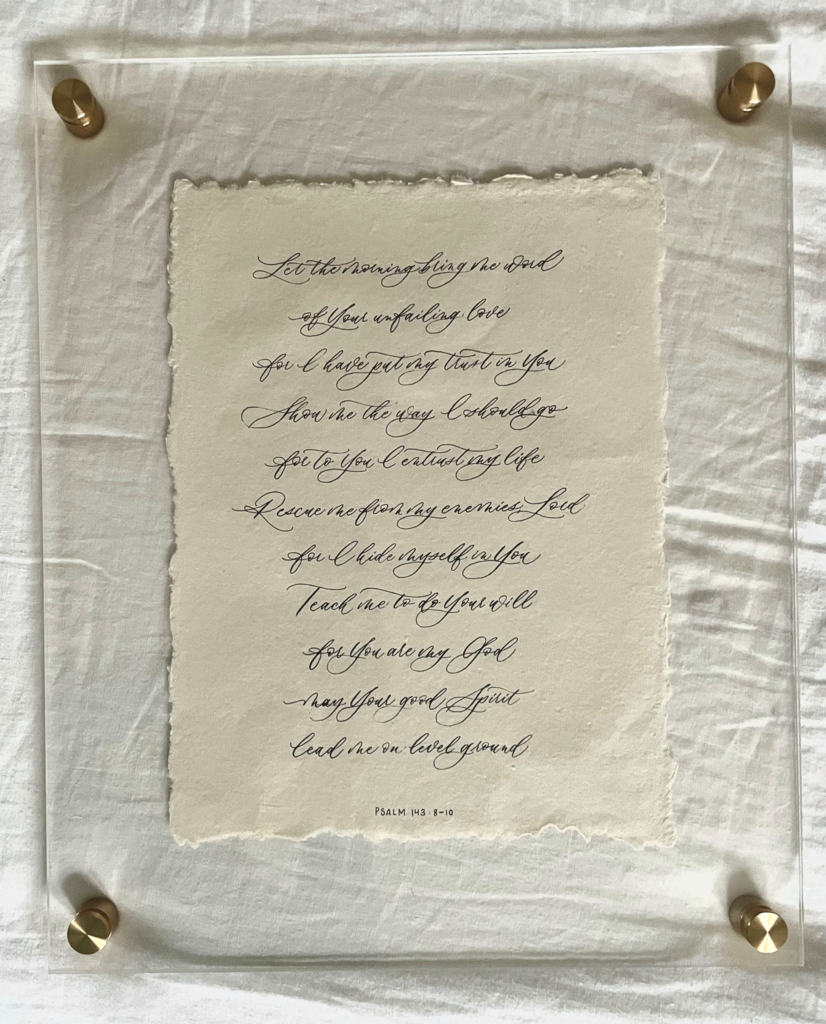 Let the morning bring me word
of Your unfailing love
for I have put my trust in You
Show me the way I should go
for to You I entrust my life
Rescue me from my enemies, Lord
for I hide myself in You
Teach me to do Your will
for You are my God
may Your good Spirit
lead me on level ground
PSALM 143:8-10